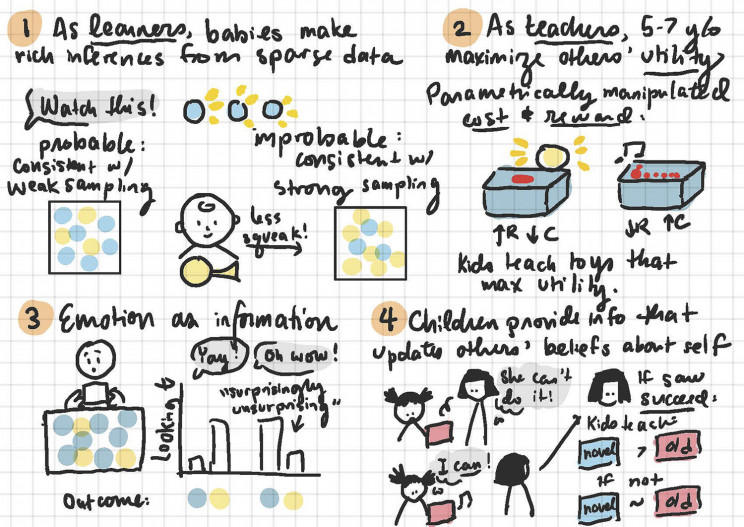 1 As learners, babies make
rich inferences from sparse data
Watch this!
probable:
consistent w/
weak sampling
improbable:
consistent w/
strong sampling
less
squeak!
2 As teachers, 5-7 y/o
maximize others' utility
Parametrically manipulated
cost & reward.
↑R ↓C
↓R ↑C
Kids teach toys that
max utility.
3 Emotion as information
Yay!
Oh wow!
"surprisingly
unsurprising"
Looking
Outcome:
4 Children provide info that
updates others' beliefs about self
She can't
do it!
I can!
If saw
succeed:
Kids teach
novel > old
If not
novel ~ old